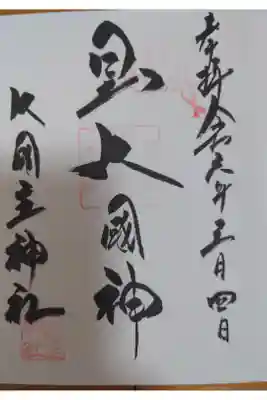 奉拝令和六年三月四日
日出大國神
大国主神社